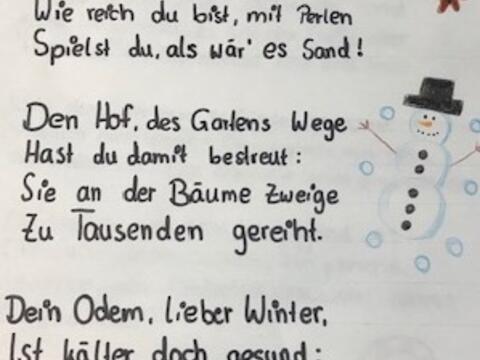 Wie reich du bist, mit Perlen
Spielst du, als wär' es Sand!
Den Hof, des Gartens Wege
Hast du damit bestreut:
Sie an der Bäume Zweige
Zu Tausenden gereiht.
Dein Odem, lieber Winter,
Ist kälter doch gesund;